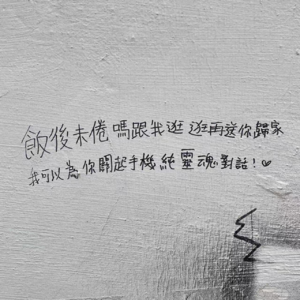 飯後未倦嗎跟我逛逛再送你歸家
我可以為你關起手機純靈魂對話！♡